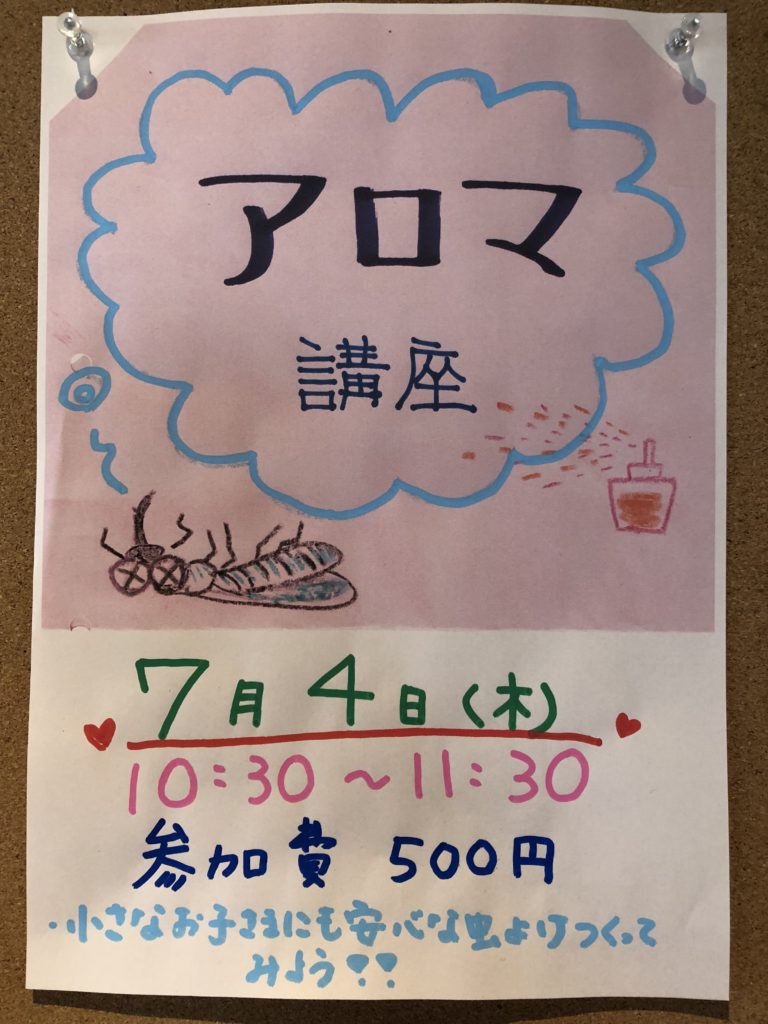 アロマ
講座
7月4日(木)
10:30~11:30
参加費 500円
・小さなお子さまにも安心な虫よけつくって
みよう??